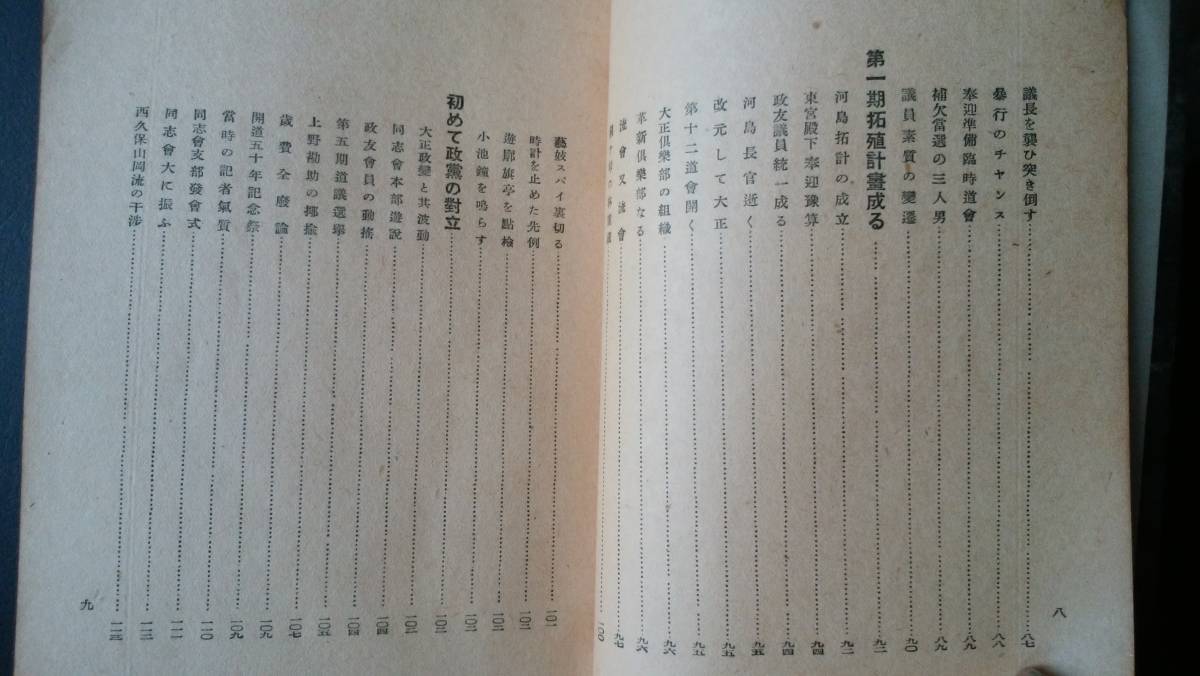 議長を襲ひ突き倒す……八七
暴行のチャンス……八八
奉迎準備臨時道會……八九
補欠當選の三人男……八九
議員素質の變遷……九〇
第一期拓殖計畫成る……九二
河島拓計の成立……九二
東宮殿下奉迎豫算……九四
政友議員統一成る……九四
河島長官逝く……九五
改元して大正……九五
第十二道會開く……九五
大正倶樂部の組織……九六
革新倶樂部なる……九六
流會又流會……九七
……一〇〇
八
藝妓スパイ裏切る……一〇一
時計を止めた先例……一〇二
遊廓旗亭を點檢……一〇二
小池鐘を鳴らす……一〇二
初めて政黨の對立……一〇三
大正政變と其波動……一〇三
同志會本部遊説……一〇四
政友會員の動搖……一〇四
第五期道議選擧……一〇五
上野勘助の揶揄……一〇六
歳費全廢論……一〇七
開道五十年記念祭……一〇九
當時の記者氣質……一〇九
同志會支部發會式……一一〇
同志會大に振ふ……一一一
西久保山岡流の干渉……一一三
九